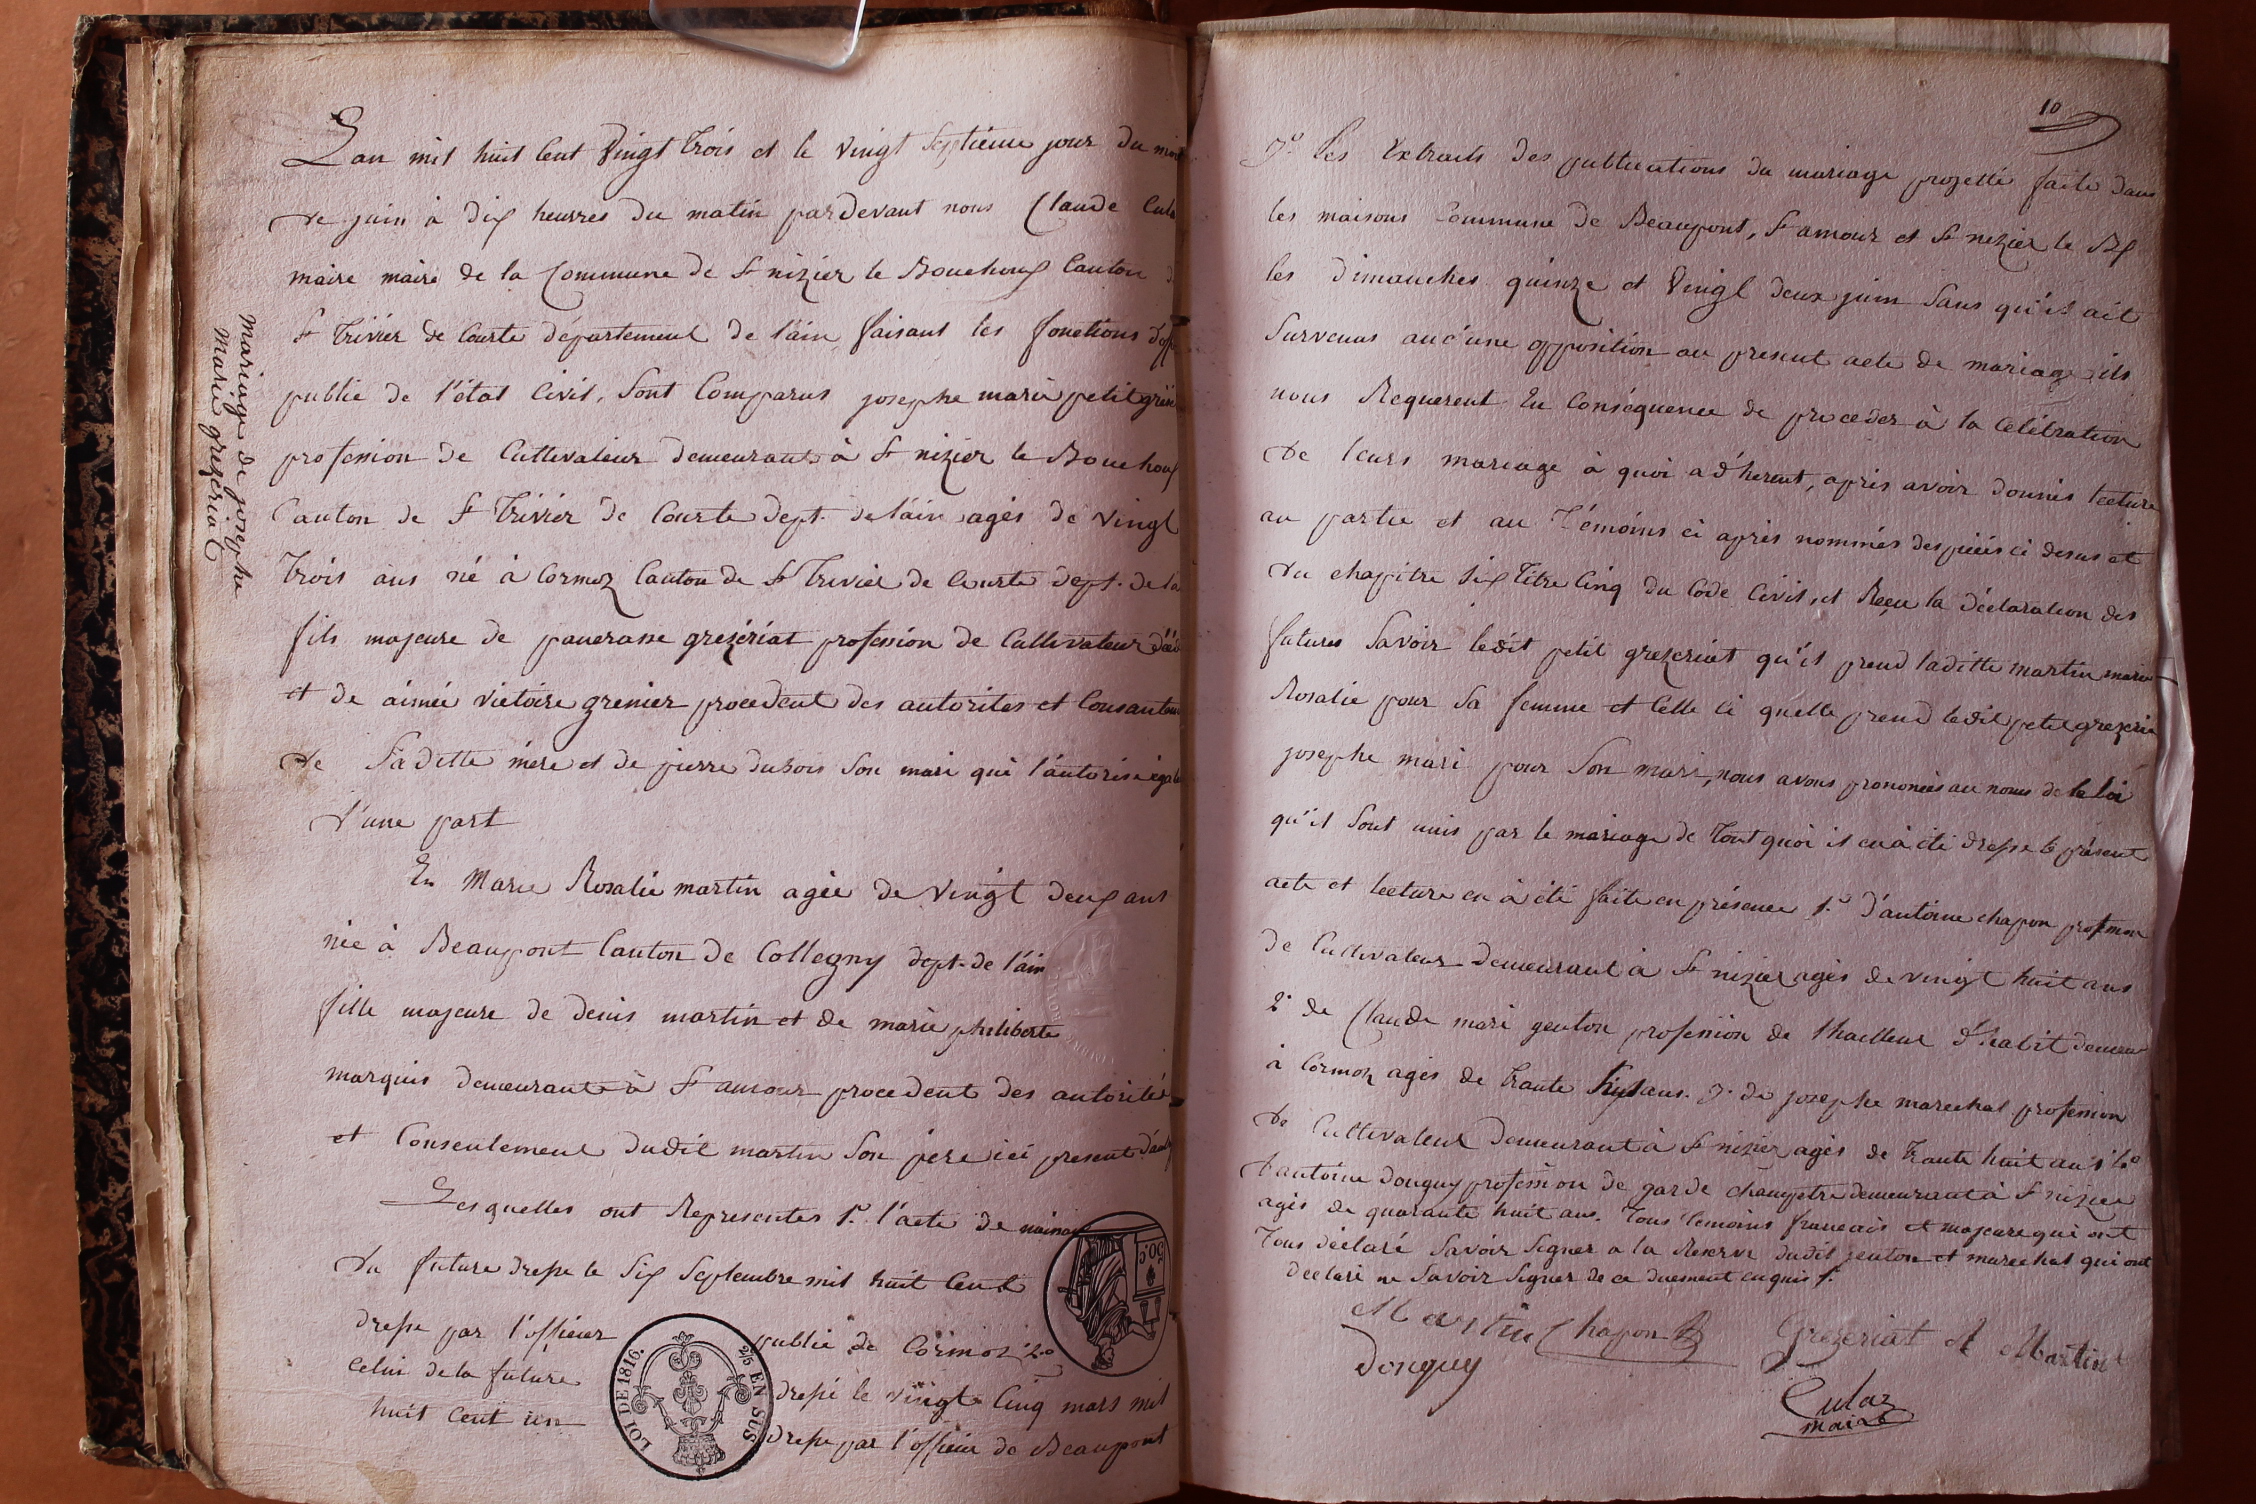 mariage de josephe
marie grezeriat
L'an mil huit Cent Vingt trois et le vingt Septieme jour du mois
de juin à dix heurres du matin pardevant nous Claude Cula
maire maire de la Commune de St nizier le Bouchoux Canton d
St Trivier de Courte département de l'ain faisant les fonctions d'off
public de l'état Civil, Sont Comparus josephe marie petit grez
profession de Cultivateur demeurant à St nizier le Bouchoux
Canton de St Trivier de Courte dept. de l'ain agés de vingt
trois ans né à Cormoz Canton de St Trivier de Courte dept. de l'a
fils majeure de pancrasse grezériat profession de Cultivateur
et de aimée victoire grenier procedent des autorites et
de Saditte mére et de pierre dubois Son mari qui l'autorise
d'une part
Et Marie Rosalie martin agée de vingt deux ans
née à Beaupont Canton de Collegny dept. de l'ain
fille majeure de denis martin et de marie philiberte
marquis demeurante à St amour procedent des autorités
et Consentement dudit martin Son pere ici present
Lesquelles ont Representes 1º. l'acte de
du future dresse le Six Septembre mil huit Cent
dresse par l'officier public de Cormoz 2º
Celui de la future dresse le vingt Cinq mars mil
huit Cent un dresse par l'officier de Beaupont
LOI DE 1816.
2/5 EN SUS
50.C
10
3º. les Extraits des publications du mariage projetté faite dans
les maisons Commune de Beaupont, St amour et St nizier le Bx
les dimanches quinze et Vingt deux juin Sans qu'il ait
Survenus auc'une opposition au present acte de mariage ils
nous Requerent En Conséquence de proceder à la Celébration
de leurs mariage à quoi ad'herent, après avoir donnés lecture
au partie et au Témoins ci après nommés des piéés ci desus et
du chapitre Six titre Cinq du Code Civil, et Reçu la déclaration des
futures Savoir ledit petit grezeriat qu'il prend laditte martin marie
Rosalie pour Sa femme et Celle ci quelle prend ledit petit grezeria
josephe mari pour Son mari, nous avons prononcés au nom de la loi
qu'il Sont unis par le mariage de tout quoi il en à été dresse le présent
acte et lecture en à été faite en présence 1.º d'antoine chapon profession
de Cultivateur demeurant à St nizier agés de vingt huit ans
2º de Claude mari genton profession de thailleur d'habit
à Cormoz agés de trante ans. 3º de josephe marechal profession
de Cultivateur demeurant à St nizier agés de trante huit ans 4º
d'antoine donguy profession de garde champetre demeurant à St nizier
agés de quarante huit ans. Tous témoins francais et majeure qui ont
Tous déclaré Savoir Signer a la Reserve dudit genton et marechal qui ont
déclaré ne Savoir Signer de ce duement enquis
Martin Chapon Grezeriat Martin
Donguy
Culaz
maire